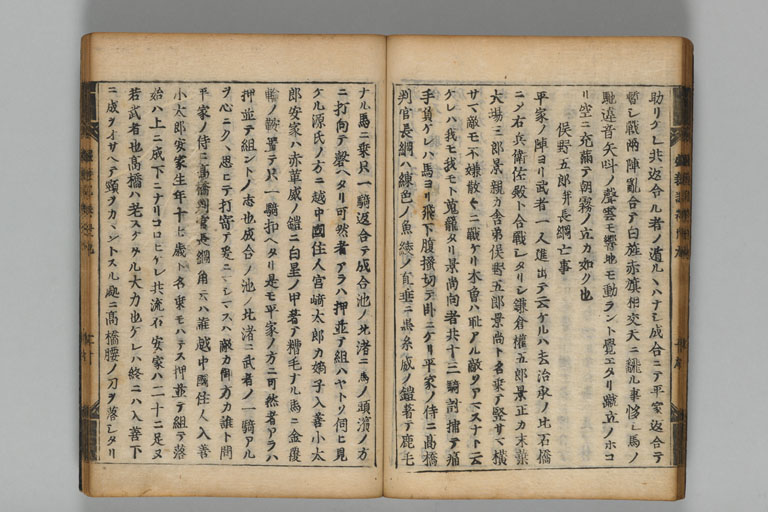 助リケレ共返合ル者ノ遁ルヽハナシ成合ニテ平家返合テ
暫シ戦両陣乱合テ白旌赤旗相交天ニ飜ル事夥シ馬ノ
馳違音矢叫ノ聲雲モ響地モ動ラント覺エタリ蹴立ノホコ
リ空ニ充滿テ朝霧ノ立カ如ク也
俣野五郎并長綱亡事
平家ノ陣ヨリ武者一人進出テ云ケルハ去治承ノ比石橋
ニメ右兵衛佐殿ト合戦シタリシ鎌倉權五郎景正カ末葉
大場三郎景親カ舎弟俣野五郎景尚ト名乗テ竪サマ横
サマ敵モ不嫌散々ニ戦ケリ木曽ハ耻アル敵ソアマスナト云
ケレハ我モ我モト蒐籠タリ景尚向者共十三騎討捕テ痛
手負ケレハ馬ヨリ飛下腹掻切テ臥ニケリ平家ノ侍ニ髙橋
判官長綱ハ練色ノ魚綾ノ直垂ニ黒糸威ノ鎧著テ鹿毛
ナル馬ニ乗只一騎返合テ成合池ノ北渚ニ馬ノ頭濱ノ方
ニ打向テ磬ヘタリ可然者アラハ押並テ組ハヤトソ伺ヒ見
ケル源氏ノ方ニ越中國住人宮﨑太郎カ嫡子入善小太
郎安家ハ赤革威ノ鎧ニ白星ノ甲著テ糟毛ナル馬ニ金覆
輪ノ鞍置テ只一騎扣ヘタリ是モ平家ノ方ニ可然者アラハ
押並テ組ントノ志也成合ノ池ノ北渚ニ武者ノ一騎アル
ヲ心ニクヽ思ヒテ打寄テ爰ニマシマスハ敵カ御方カ誰ト問
平家ノ侍ニ髙橋判官長綱角云ハ誰越中國住人入善
小太郎安家生年十七歳ト名乗モハテス押並テ組テ落
始ハ上ニ成下ニナリコロヒケレ共流石安家ハ二十ニ足ヌ
若武者也髙橋ハ老スケタル大力也ケレハ終ニハ入善下
ニ成テイサヘテ頸ヲカヽントスル處ニ髙橋腰ノ刀ヲ落シタリ